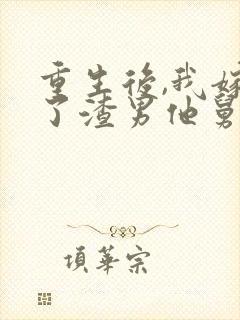 重生後,我嫁
了渣男他舅
項華宗